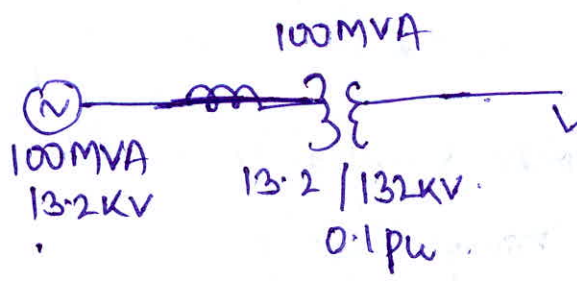 100MVA
N
100MVA
13.2KV
13.2/132KV.
0.1pu
V